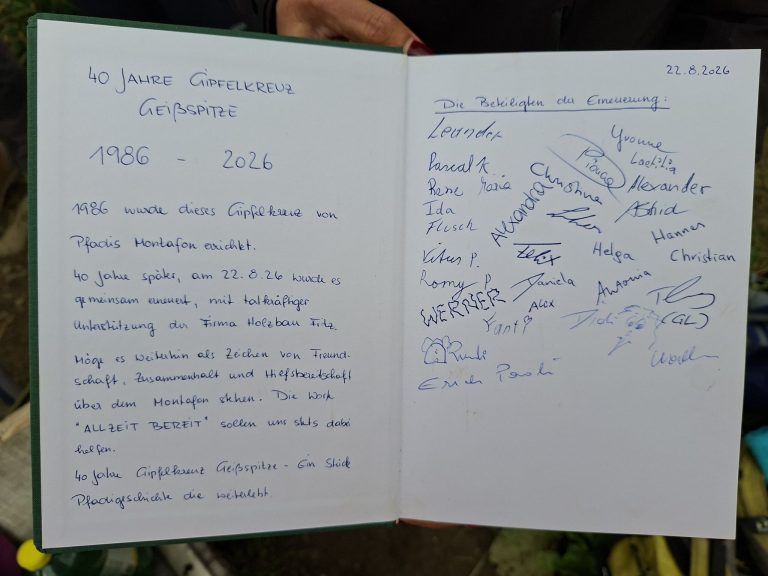 40 JAHRE GIPFELKREUZ
GEIßSPITZE
1986 - 2026
1986 wurde dieses Gipfelkreuz von
Pfadis Montafon errichtet.
40 Jahre später, am 22.8.26 wurde es
gemeinsam erneuert, mit tatkräftiger
Unterstützung der Firma Holzbau Fritz.
Möge es weiterhin als Zeichen von Freund-
schaft, Zusammenhalt und Hilfsbereitschaft
über dem Montafon stehen. Die Worte
"ALLZEIT BEREIT" sollen uns stets dabei
helfen.
40 Jahre Gipfelkreuz Geißspitze - Ein Stück
Pfadigeschichte die weiterlebt.
22.8.2026
Die Beteiligten der Erneuerung:
Leander
Yvonne
Laetitia
Pascal K
Christina
Alexander
Rene Maria
Alexandra
Ida
Astrid
Flusch
Hannes
Vitus P.
Felix
Helga
Christian
Romy P.
Daniela
Antonia
WERNER
Alex
Didi
(GL)
Erich